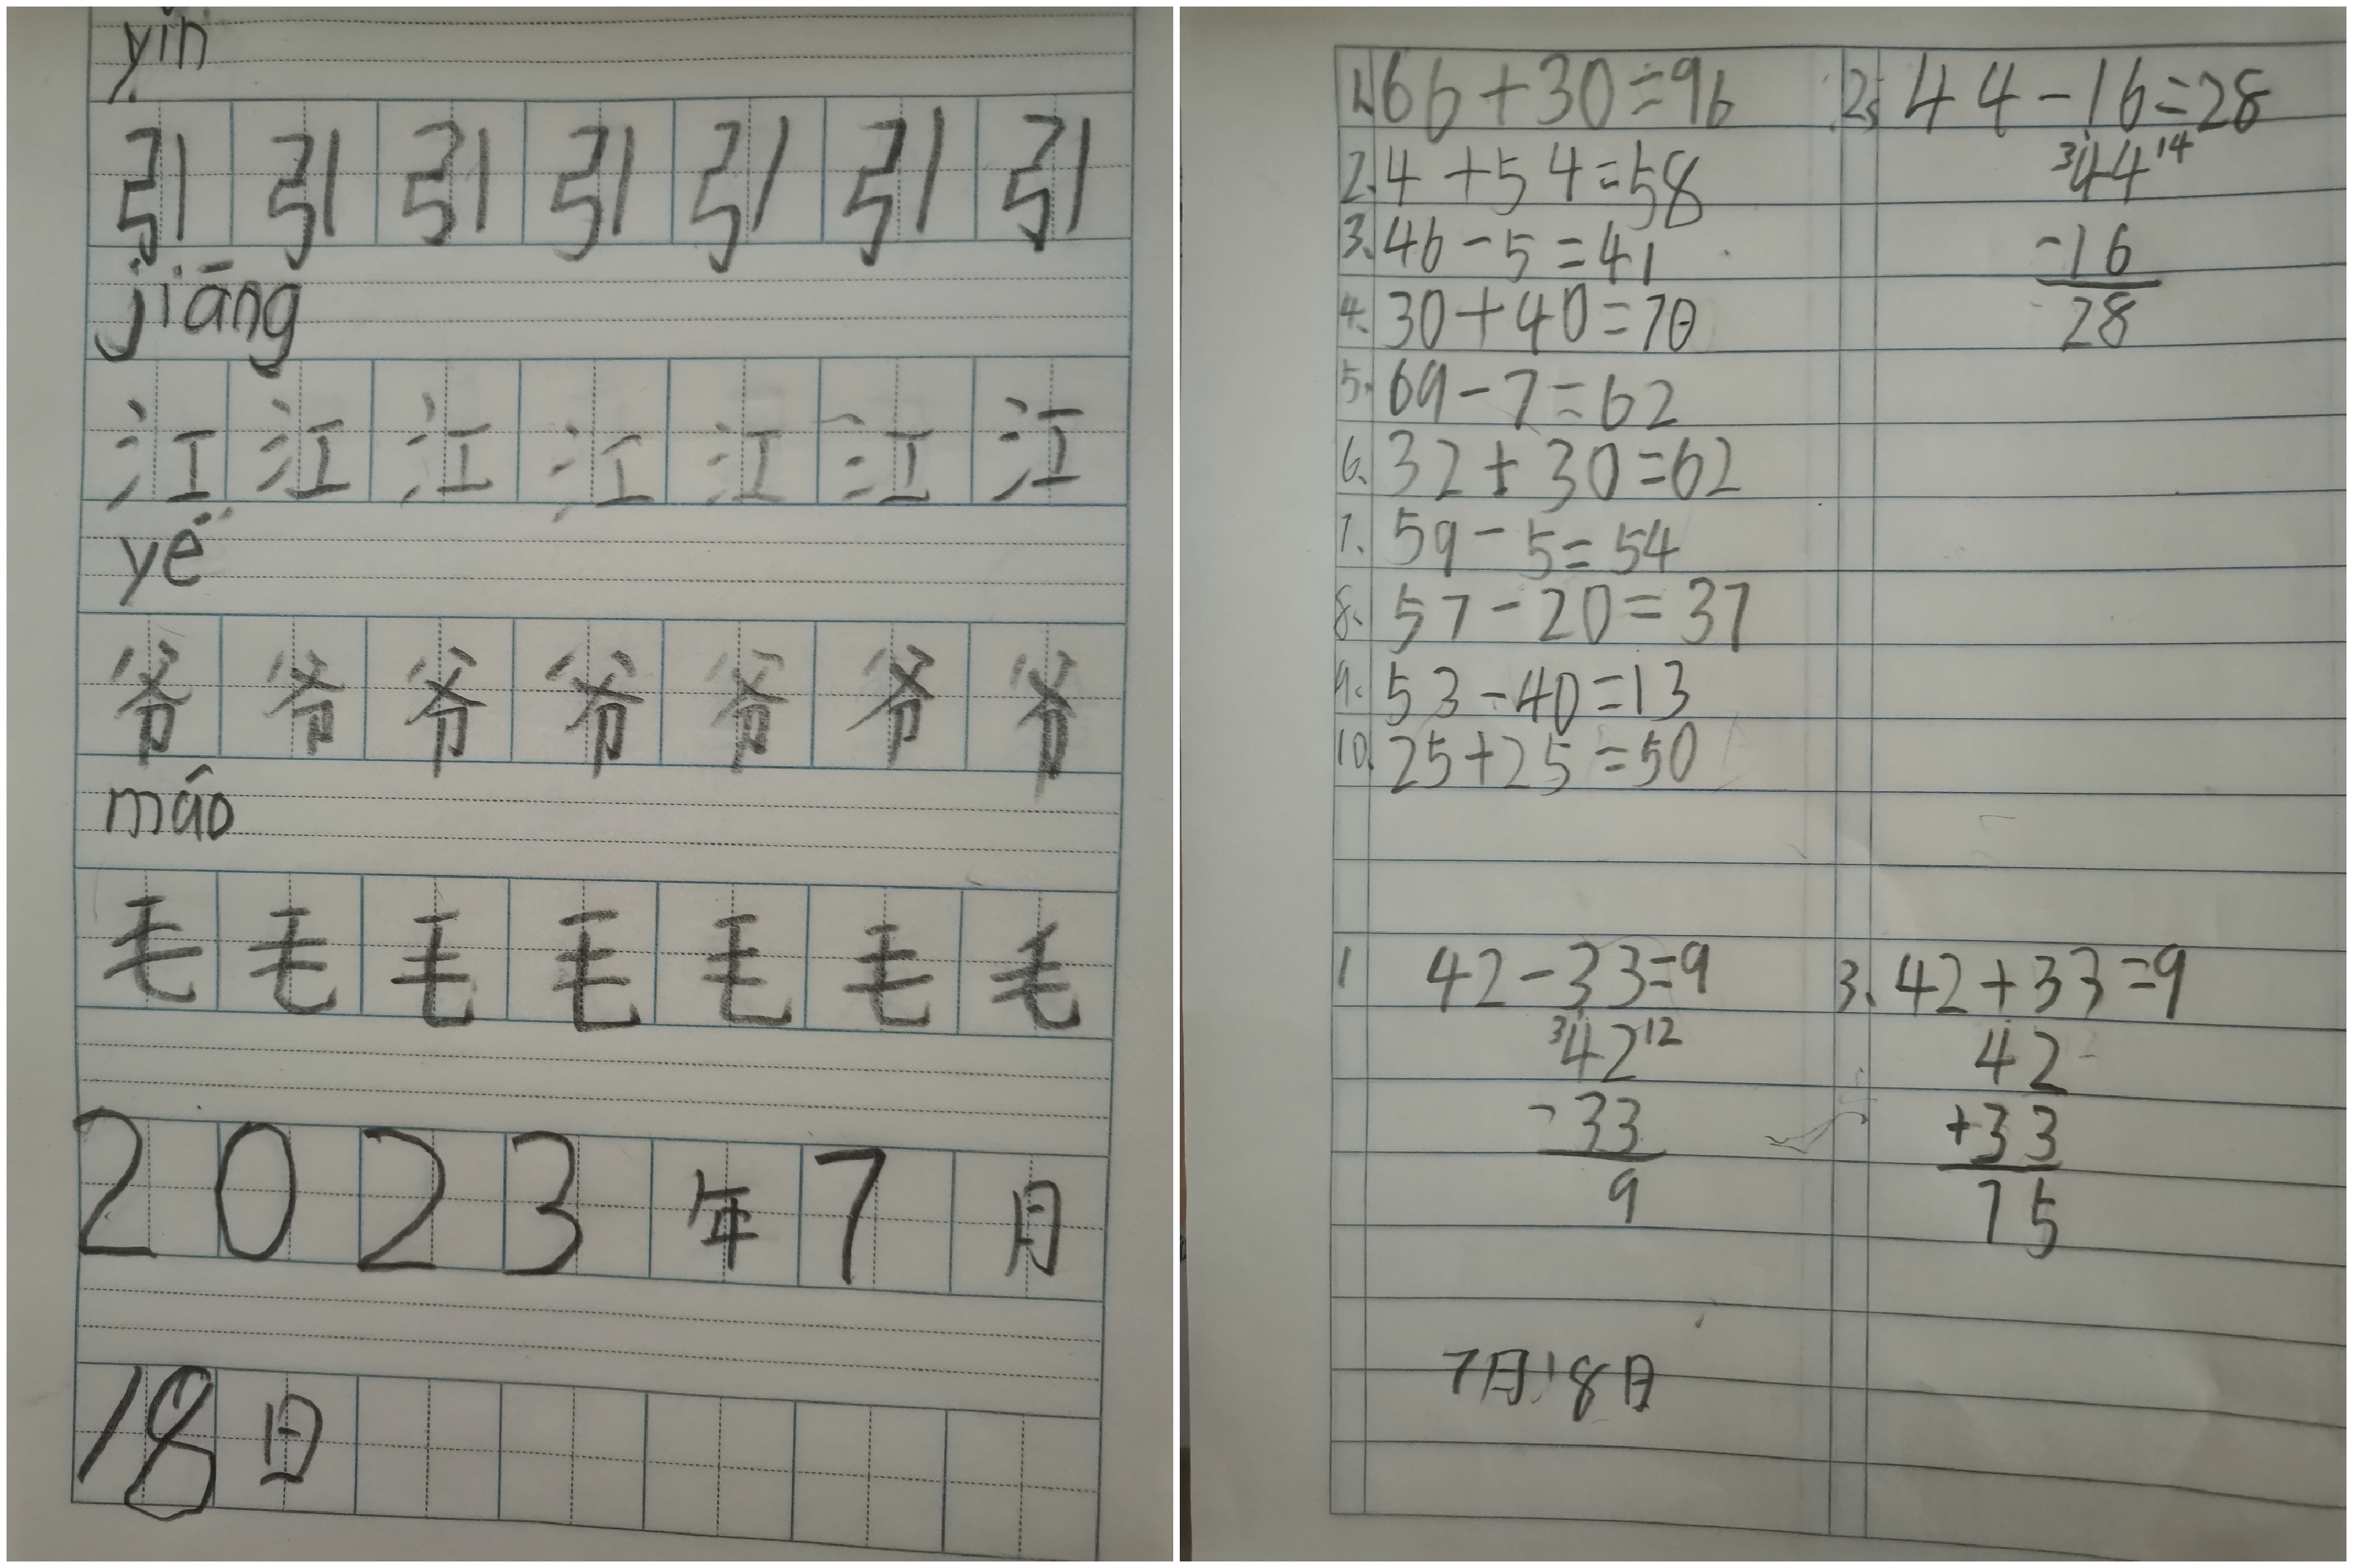 yǐn
引引引引引引引
jiāng
江江江江江江江
yé
爷爷爷爷爷爷爷
máo
毛毛毛毛毛毛毛
2023年7月
18日
1. 66+30=96
2. 4+54=58
3. 46-5=41
4. 30+40=70
5. 69-7=62
6. 32+30=62
7. 59-5=54
8. 57-20=37
9. 53-40=13
10. 25+25=50
2. 44-16=28
3 44 14
-16
28
1 42-33=9
3 42 12
-33
9
3. 42+33=9
42
+33
75
7月18日